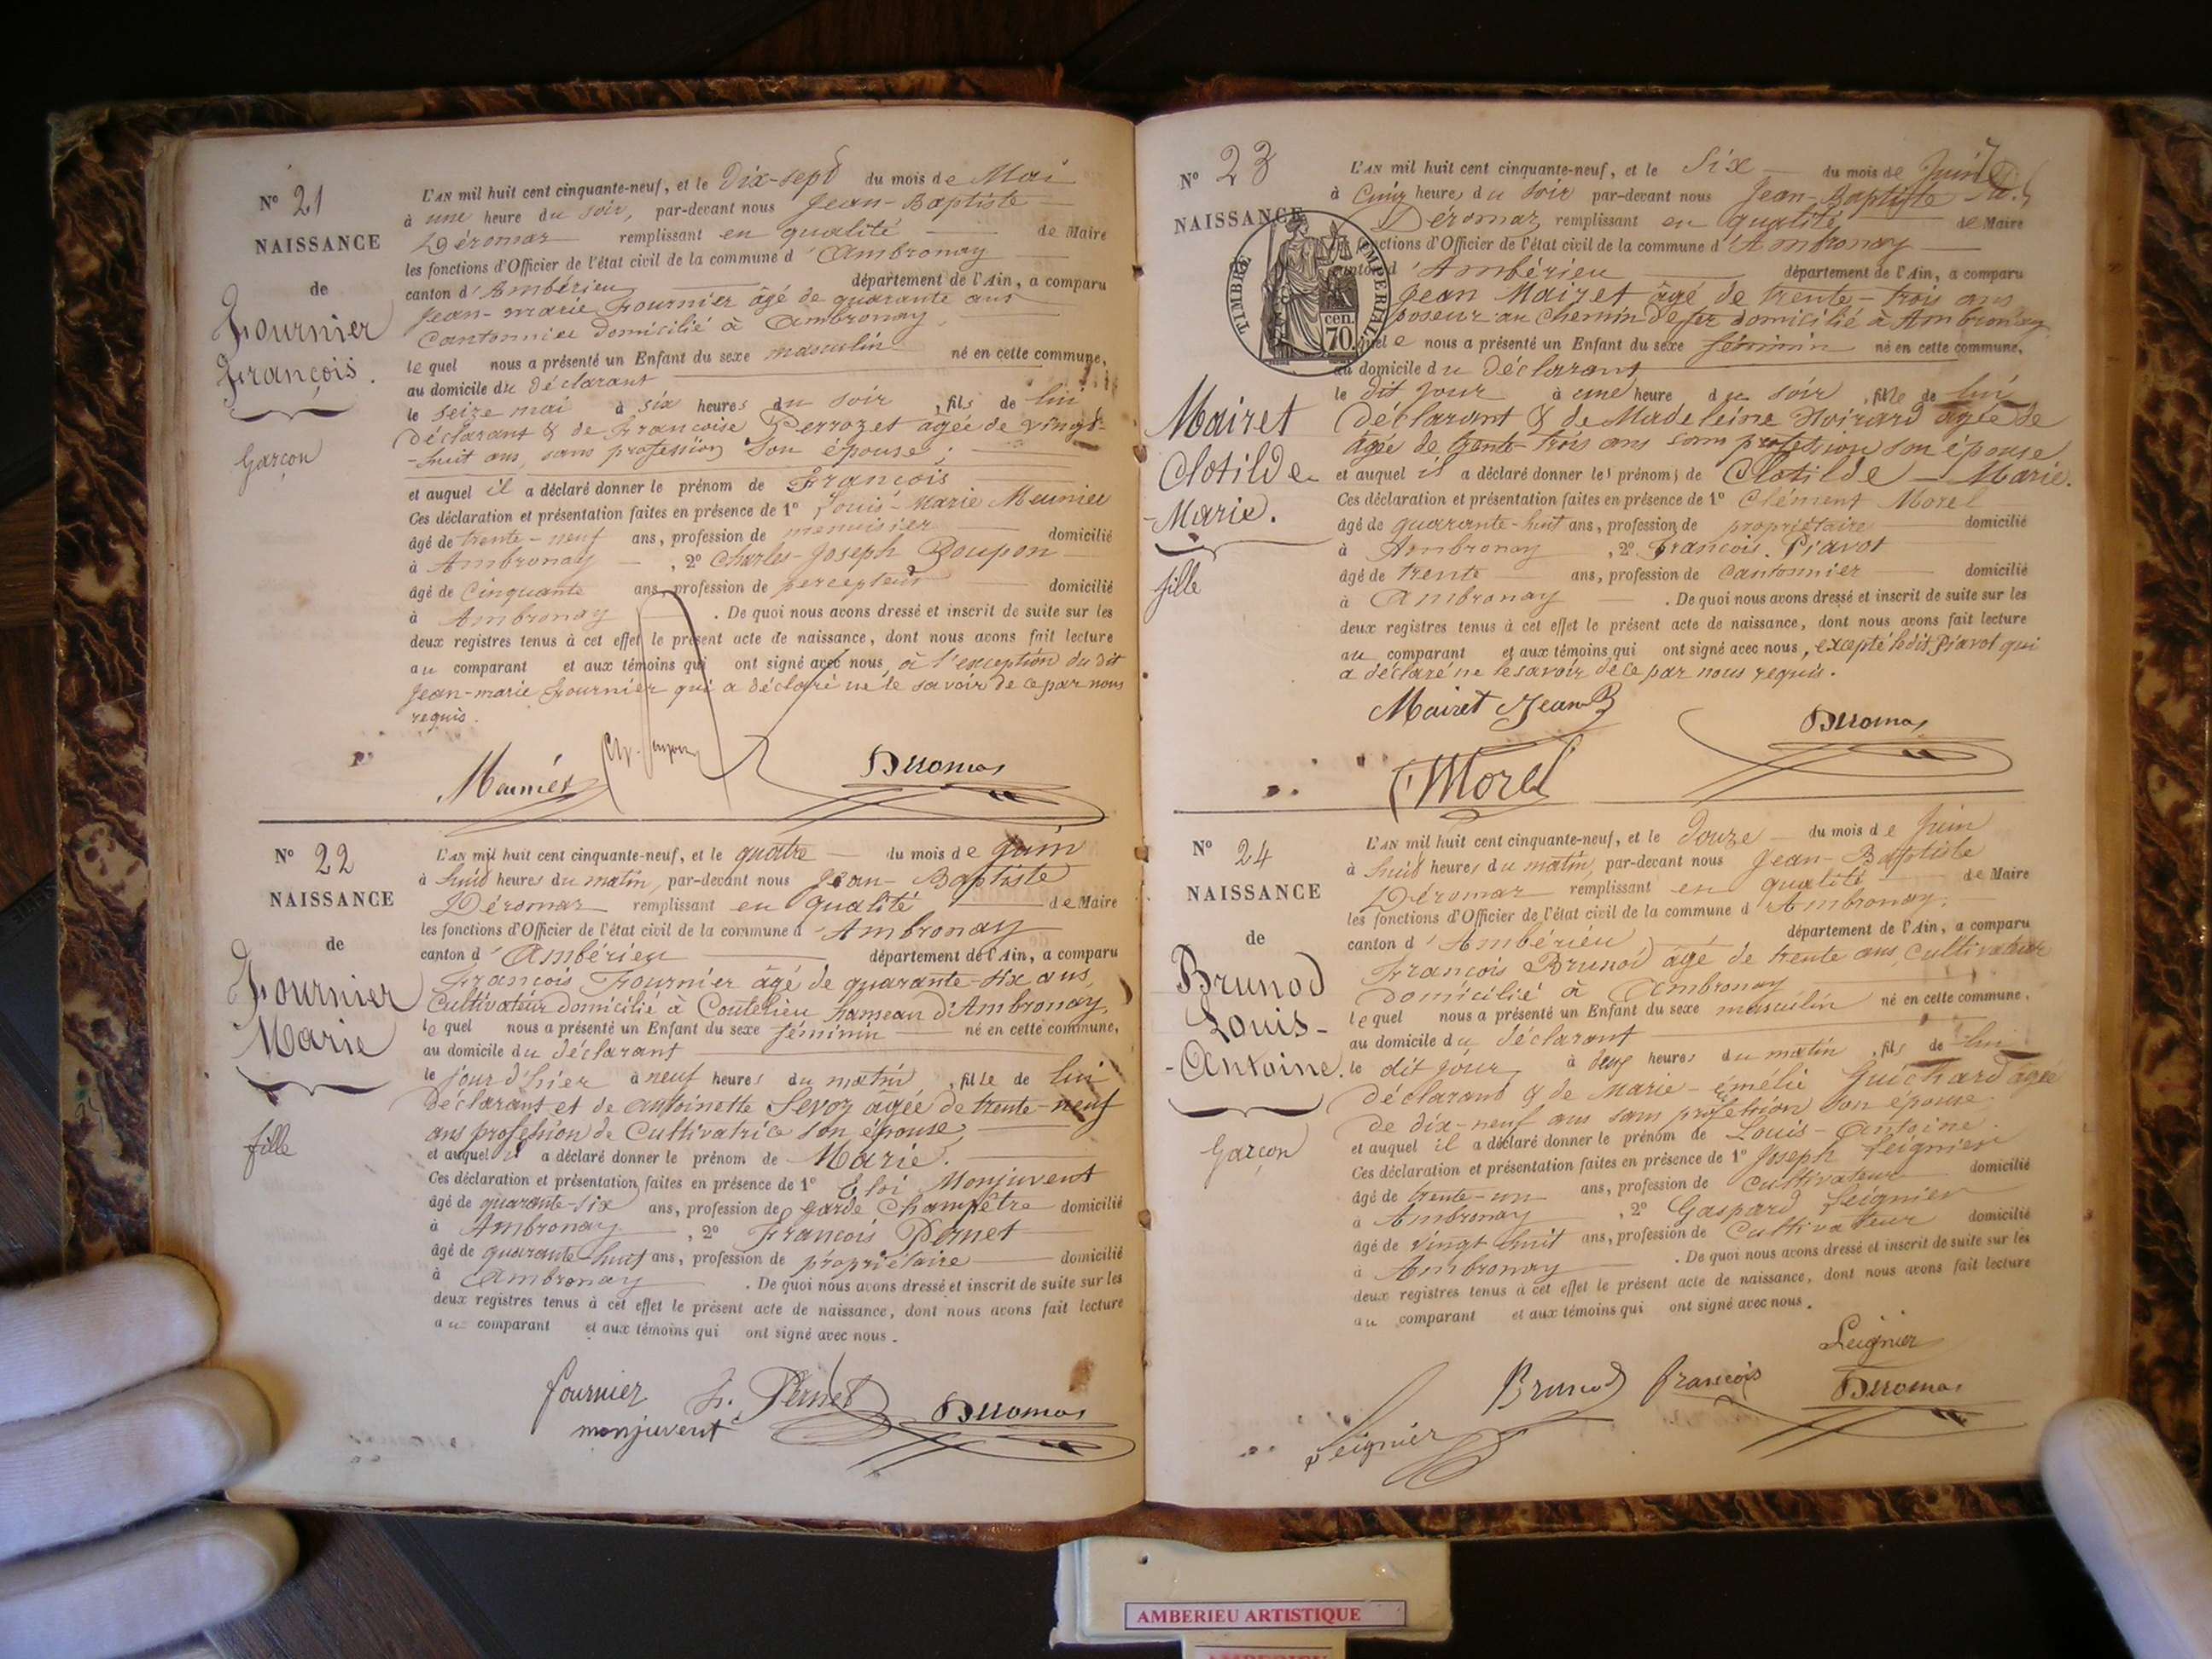 N° 21
NAISSANCE
de
Fournier
François.
Garçon
L'AN mil huit cent cinquante-neuf, et le Dix-sept du mois de Mai
à une heure du soir, par-devant nous Jean-Baptiste
Déromas remplissant en qualité de Maire
les fonctions d'Officier de l'état civil de la commune d'Ambronay
canton d'Ambérieu département de l'Ain, a comparu
Jean-marie Fournier âgé de quarante ans
Cantonnier domicilié à Ambronay
lequel nous a présenté un Enfant du sexe masculin né en cette commune,
au domicile du déclarant
le seize mai à six heures du soir, fils de lui
déclarant & de Francoise Perrozet agée de vingt-
-huit ans, sans profession son épouse;
et auquel il a déclaré donner le prénom de François
Ces déclaration et présentation faites en présence de 1° Louis-Marie Meunier
âgé de trente-neuf ans, profession de menuisier domicilié
à Ambronay, 2° Charles-Joseph Poupon
âgé de Cinquante ans, profession de percepteur domicilié
à Ambronay. De quoi nous avons dressé et inscrit de suite sur les
deux registres tenus à cet effet le présent acte de naissance, dont nous avons fait lecture
au comparant et aux témoins qui ont signé avec nous à l'exception du dit
Jean-marie Fournier qui a déclaré ne le savoir de ce par nous
requis.
Meunier Deromas
N° 22
NAISSANCE
de
Fournier
Marie
fille
L'AN mil huit cent cinquante-neuf, et le quatre du mois de Juin
à huit heures du matin, par-devant nous Jean-Baptiste
Déromas remplissant en qualité de Maire
les fonctions d'Officier de l'état civil de la commune d'Ambronay
canton d'Ambérieu département de l'Ain, a comparu
François Fournier âgé de quarante-six ans,
Cultivateur domicilié à Coutelieu hameau d'Ambronay,
lequel nous a présenté un Enfant du sexe féminin né en cette commune,
au domicile du déclarant
le jour d'hier à neuf heures du matin, fille de lui
déclarant et de antoinette Levoz âgée de trente-neuf
ans profession de Cultivatrice son épouse,
et auquel il a déclaré donner le prénom de Marie.
Ces déclaration et présentation faites en présence de 1° Eloi Monjuvent
âgé de quarante-six ans, profession de garde Champêtre domicilié
à Ambronay, 2° François Pernet
âgé de quarante-huit ans, profession de propriétaire domicilié
à Ambronay. De quoi nous avons dressé et inscrit de suite sur les
deux registres tenus à cet effet le présent acte de naissance, dont nous avons fait lecture
au comparant et aux témoins qui ont signé avec nous.
fournier fr. Pernet Deromas
monjuvent
N° 23
NAISSANCE
TIMBRE IMPERIAL
70 cen.
Mairet
Clotilde
-Marie.
fille
L'AN mil huit cent cinquante-neuf, et le Six du mois de Juin
à Cinq heures du soir par-devant nous Jean-Baptiste
Déromas, remplissant en qualité de Maire
fonctions d'Officier de l'état civil de la commune d'Ambronay
canton d'Ambérieu département de l'Ain, a comparu
Jean Mairet âgé de trente-trois ans
poseur au chemin de fer domicilié à Ambronay
lequel nous a présenté un Enfant du sexe féminin né en cette commune,
au domicile du déclarant
le dit jour à une heure du soir, fille de lui
déclarant & de Madeleine Noirard agée de
âgée de trente-trois ans sans profession son épouse,
et auquel il a déclaré donner les prénoms de Clotilde-Marie.
Ces déclaration et présentation faites en présence de 1° Clément Morel
âgé de quarante-huit ans, profession de propriétaire domicilié
à Ambronay, 2° François Piavot
âgé de trente ans, profession de Cantonnier domicilié
à Ambronay. De quoi nous avons dressé et inscrit de suite sur les
deux registres tenus à cet effet le présent acte de naissance, dont nous avons fait lecture
au comparant et aux témoins qui ont signé avec nous, excepté ledit Piavot qui
a déclaré ne le savoir de ce par nous requis.
Mairet Jean B Deromas
Morel
N° 24
NAISSANCE
de
Brunod
Louis-
-Antoine.
Garçon
L'AN mil huit cent cinquante-neuf, et le Douze du mois de Juin
à huit heures du matin, par-devant nous Jean-Baptiste
Déromas remplissant en qualité de Maire
les fonctions d'Officier de l'état civil de la commune d'Ambronay,
canton d'Ambérieu département de l'Ain, a comparu
François Brunod âgé de trente ans, cultivateur
domicilié à Ambronay
lequel nous a présenté un Enfant du sexe masculin né en cette commune,
au domicile du déclarant
le dit jour à deux heures du matin, fils de lui
déclarant & de Marie-émélie Guichard agée
de dix-neuf ans sans profession son épouse
et auquel il a déclaré donner le prénom de Louis-Antoine.
Ces déclaration et présentation faites en présence de 1° Joseph Leignier
âgé de trente-un ans, profession de Cultivateur domicilié
à Ambronay, 2° Gaspard Leignier
âgé de vingt huit ans, profession de Cultivateur domicilié
à Ambronay. De quoi nous avons dressé et inscrit de suite sur les
deux registres tenus à cet effet le présent acte de naissance, dont nous avons fait lecture
au comparant et aux témoins qui ont signé avec nous.
Leignier
Brunod françois Deromas
Leignier
AMBERIEU ARTISTIQUE
AMBERIEU